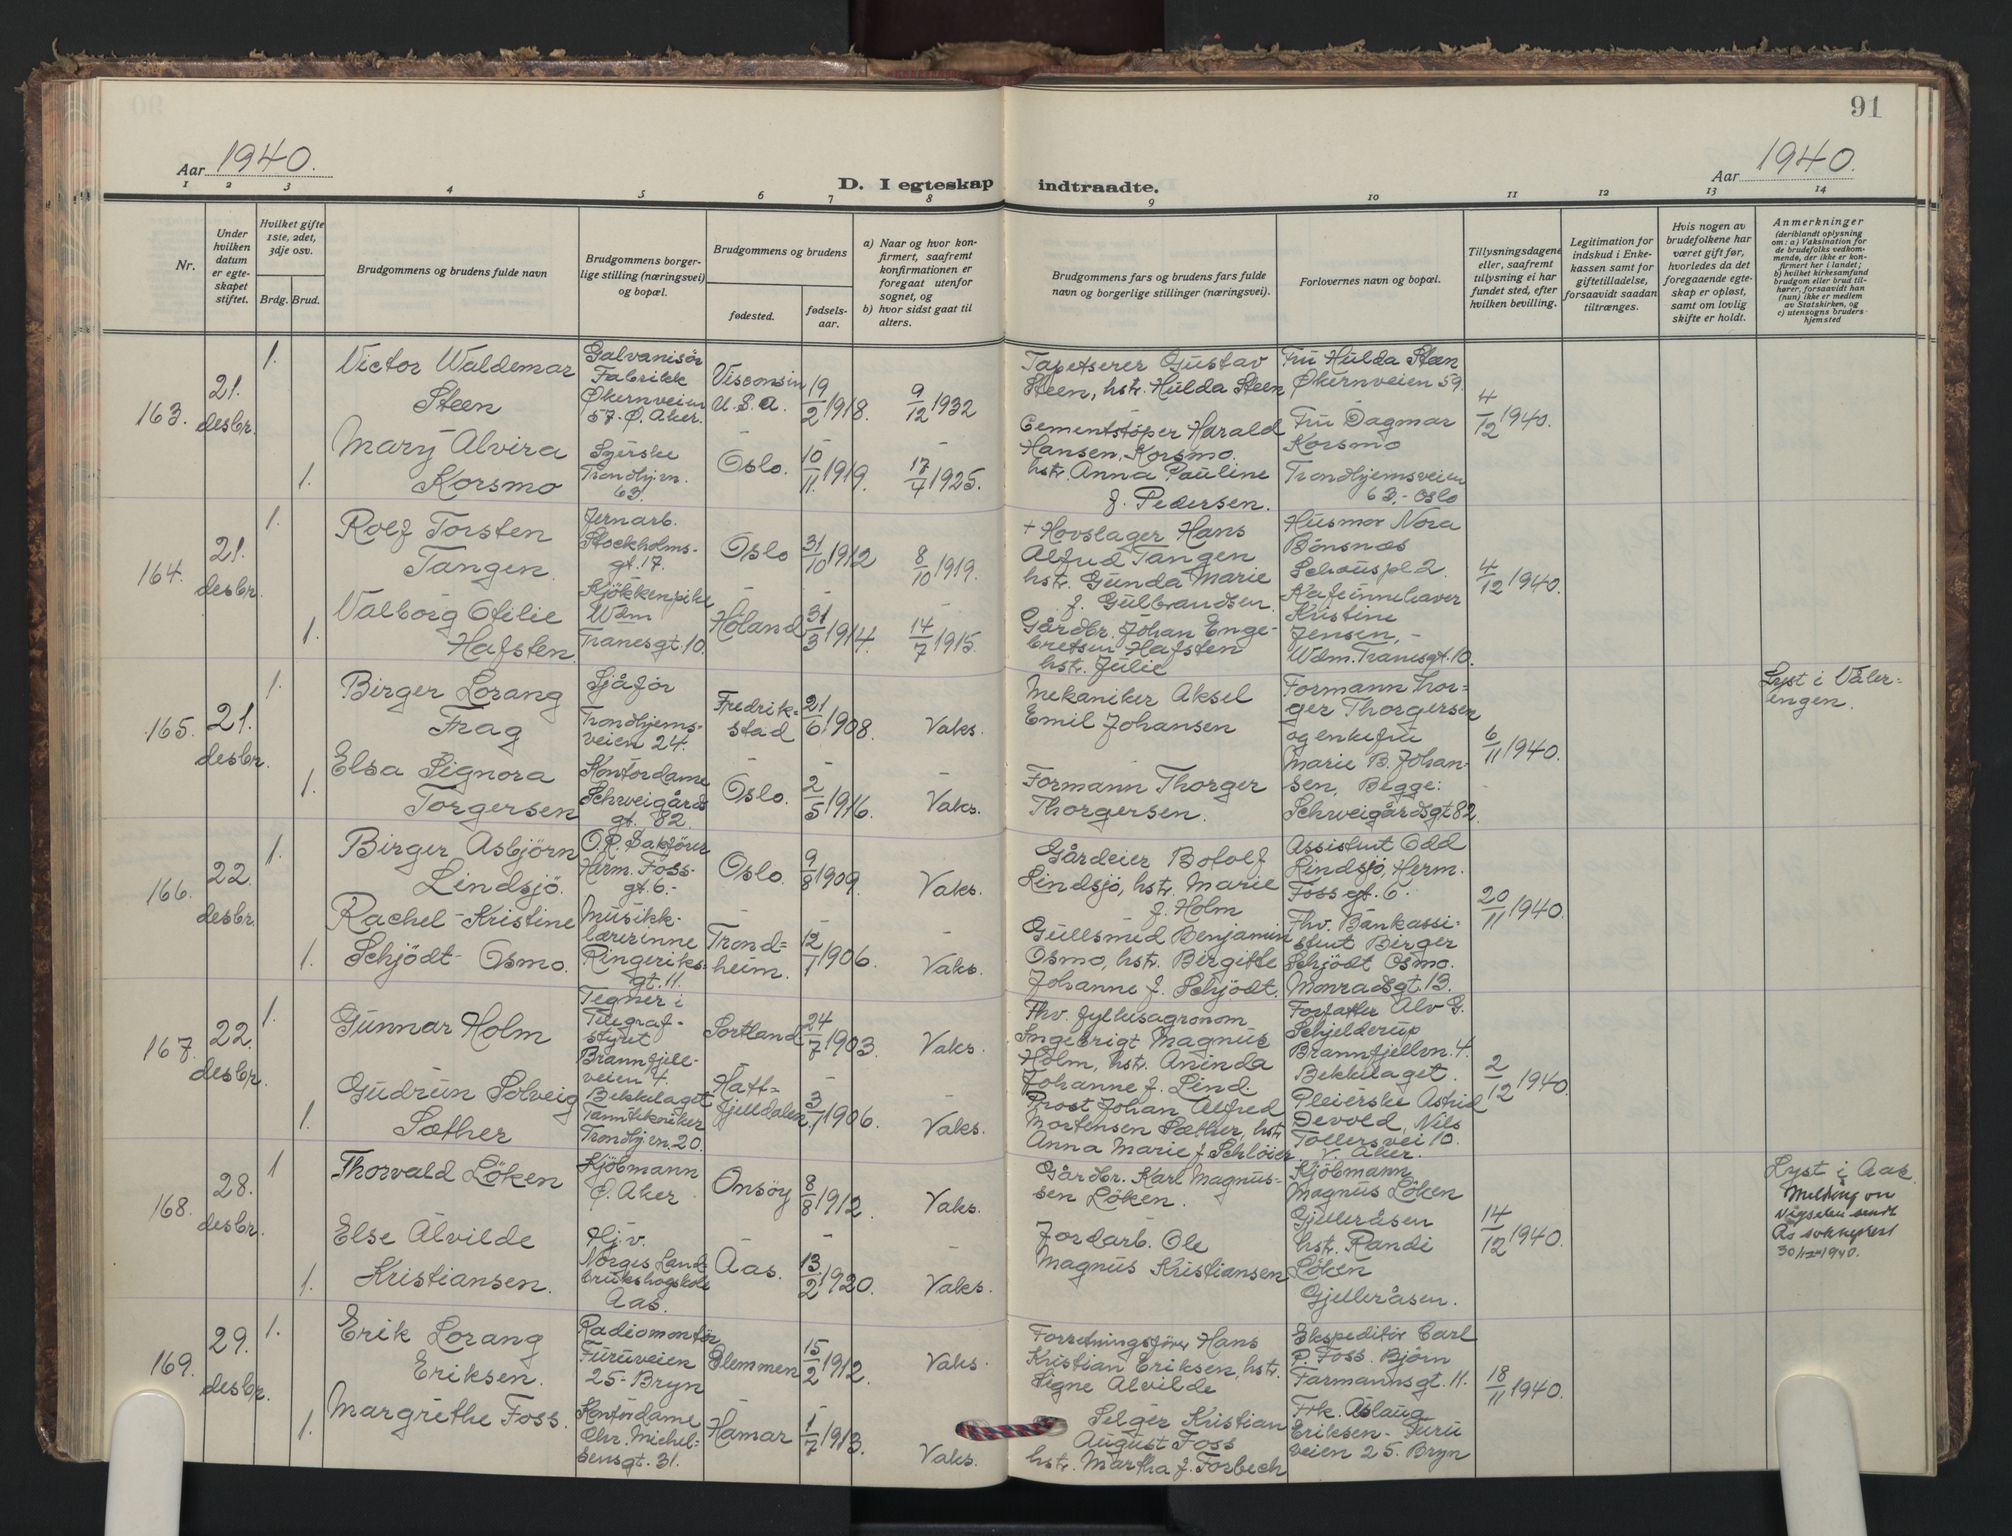 91
Aar 1940.
Aar 1940.
D. I egteskap indtraadte.
1 2 3 4 5 6 7 8 9 10 11 12 13 14
Nr.
Under hvilken datum er egteskapet stiftet.
Hvilket gifte 1ste, 2det, 3dje osv.
Brdg. Brud.
Brudgommens og brudens fulde navn
Brudgommens borgerlige stilling (næringsvei) og bopæl.
Brudgommens og brudens
fødested.
fødselsaar.
a) Naar og hvor konfirmert, saafremt konfirmationen er foregaat utenfor sognet, og
b) hvor sidst gaat til alters.
Brudgommens fars og brudens fars fulde navn og borgerlige stillinger (næringsvei).
Forlovernes navn og bopæl.
Tillysningsdagene eller, saafremt tillysning ei har fundet sted, efter hvilken bevilling.
Legitimation for indskud i Enkekassen samt for giftetilladelse, forsaavidt saadan tiltrænges.
Hvis nogen av brudefolkene har været gift før, hvorledes da det foregaaende egteskap er opløst, samt om lovlig skifte er holdt.
Anmerkninger
(deriblandt oplysning om: a) Vaksination for de brudefolks vedkommende, der ikke er konfirmert her i landet; b) hvilket kirkesamfund brudgom eller brud tilhører, forsaavidt han (hun) ikke er medlem av Statskirken, og c) utensogns bruders hjemsted
163.
21. desbr.
1.
Victor Waldemar
Steen
Galvanisør
Fabrikk
Økernveien
57. Ø. Aker.
Visconsin
U.S.a.
19/2 1918.
9/12 1932
Tapetserer Gustav
Steen, hstr. Hulda Steen
Fru Hulda Steen
Økernveien 59.
4/12 1940.
1.
Mary Alvira
Korsmo
Syerske
Trondhj.vn.
63.
Oslo.
10/11 1919.
17/4 1925.
Cementstøper Harald
Hansen, Korsmo.
hstr. Anna Pauline
f. Pedersen.
Fru Dagmar
Korsmo
Trondhjemsveien
63. - Oslo
164.
21. desbr.
1.
Rolf Torsten
Tangen.
Jernarb.
Stockholms-
gt. 17.
Oslo
31/10 1912
8/10 1919.
+ Hovslager Hans
Alfred Tangen
hstr. Gunda Marie
f. Gulbrandsen.
Husmor Nora
Bönsnæs
Schouspl. 2.
4/12 1940.
1.
Valborg Ofilie
Hafsten
Kjökkenpike
Wdm
Tranesgt. 10.
Høland
31/3 1914.
14/7 1915.
Gårdbr. Johan Enge-
bretsen Hafsten
hstr. Julie
Kafeinnehaver
Kristine
Jensen, -
Wdm. Tranesgt. 10.
165.
21. desbr.
1.
Birger Lorang
Frag
Sjåfør
Trondhjems-
veien 24.
Fredrik-
stad
21/6 1908.
Vaks.
Mekaniker Aksel
Emil Johansen
Formann Thor-
ger Thorgersen
og enkefru
Marie B. Johan-
sen, Begge:
Schweigårdsgt 82.
6/11 1940.
Lyst i Våler-
engen.
1.
Elsa Signora
Torgersen
Kontordame
Schweigårds
gt. 82.
Oslo.
2/5 1916.
Vaks.
Formann Thorger
Thorgersen.
166.
22. desbr.
1.
Birger Asbjörn
Lindsjö.
O.R. Sakfører
Herm. Foss-
gt. 6. -
Oslo.
9/8 1909.
Vaks.
Gårdeier Botolf
Lindsjö, hstr. Marie
f. Holm
Assistent Odd
Lindsjö, Herm.
Foss gt. 6.
20/11 1940.
1.
Rachel-Kristine
Schjödt-Osmo.
Musikk-
lærerinne
Ringeriks-
gt. 11.
Trond-
heim.
12/7 1906.
Vaks.
Gullsmed Benjamin
Osmo, hstr. Birgitte
Johanne f. Schjödt.
Fhv. Bankassi-
stent Birger
Schjödt Osmo.
Monradsgt. 13.
167.
22. desbr.
1.
Gunnar Holm
Tegner i
Telegraf-
styret
Brannfjell-
veien 4.
Bekkelaget
Sortland
24/7 1903.
Vaks.
Fhv. fylkesagronom
Ingebrigt Magnus
Holm, hstr. Aninda
Johanne f. Lind.
Forfatter Alv G.
Schjelderup
Brannfjellvn. 4.
Bekkelaget.
2/12 1940.
1.
Gudrun Solveig
Sæther
Tanntekniker
Trondhj.vn. 20.
Hatt-
fjelldalen.
3/7 1906.
Vaks.
Prost Johan Alfred
Mortensen Sæther, hstr.
Anna Marie f. Schlöier
Pleierske Astrid
Devold, Nils
Tollersvei 10.
V. Aker.
168.
28. desbr.
1
Thorvald Löken
Kjöbmann
Ø. Aker
Onsöy
8/8 1912.
Vaks.
Gårdbr. Karl Magnus-
sen Löken.
Kjöbmann
Magnus Löken
Gjelleråsen
hstr. Randi
Löken
Gjelleråsen.
14/12 1940.
Lyst i Aas.
Melding om
vigselen sendt
Ås sokneprest
30/12 1940.
1.
Else Alvilde
Kristiansen.
Hj. v.
Norges Land-
brukshøgskole
Aas.
Aas.
13/2 1920.
Vaks.
Jordarb. Ole
Magnus Kristiansen
169.
29. desbr.
1.
Erik Lorang
Eriksen.
Radiomontör
Furuveien
25 - Bryn
Glemmen
15/2 1912.
Vaks.
Forretningsfører Hans
Kristian Eriksen, hstr.
Signe Alvilde
Ekspeditör Carl
P. Foss. Bjørn
Farmannsgt. 11.
18/11 1940.
1.
Margrethe Foss.
Kontordame
Chr. Michel-
sensgt. 31.
Hamar
1/7 1913.
Vaks.
Selger Kristian
August Foss
hstr. Martha f. Forbech
Frk. Aslaug
Eriksen - Furu
veien 25. Bryn